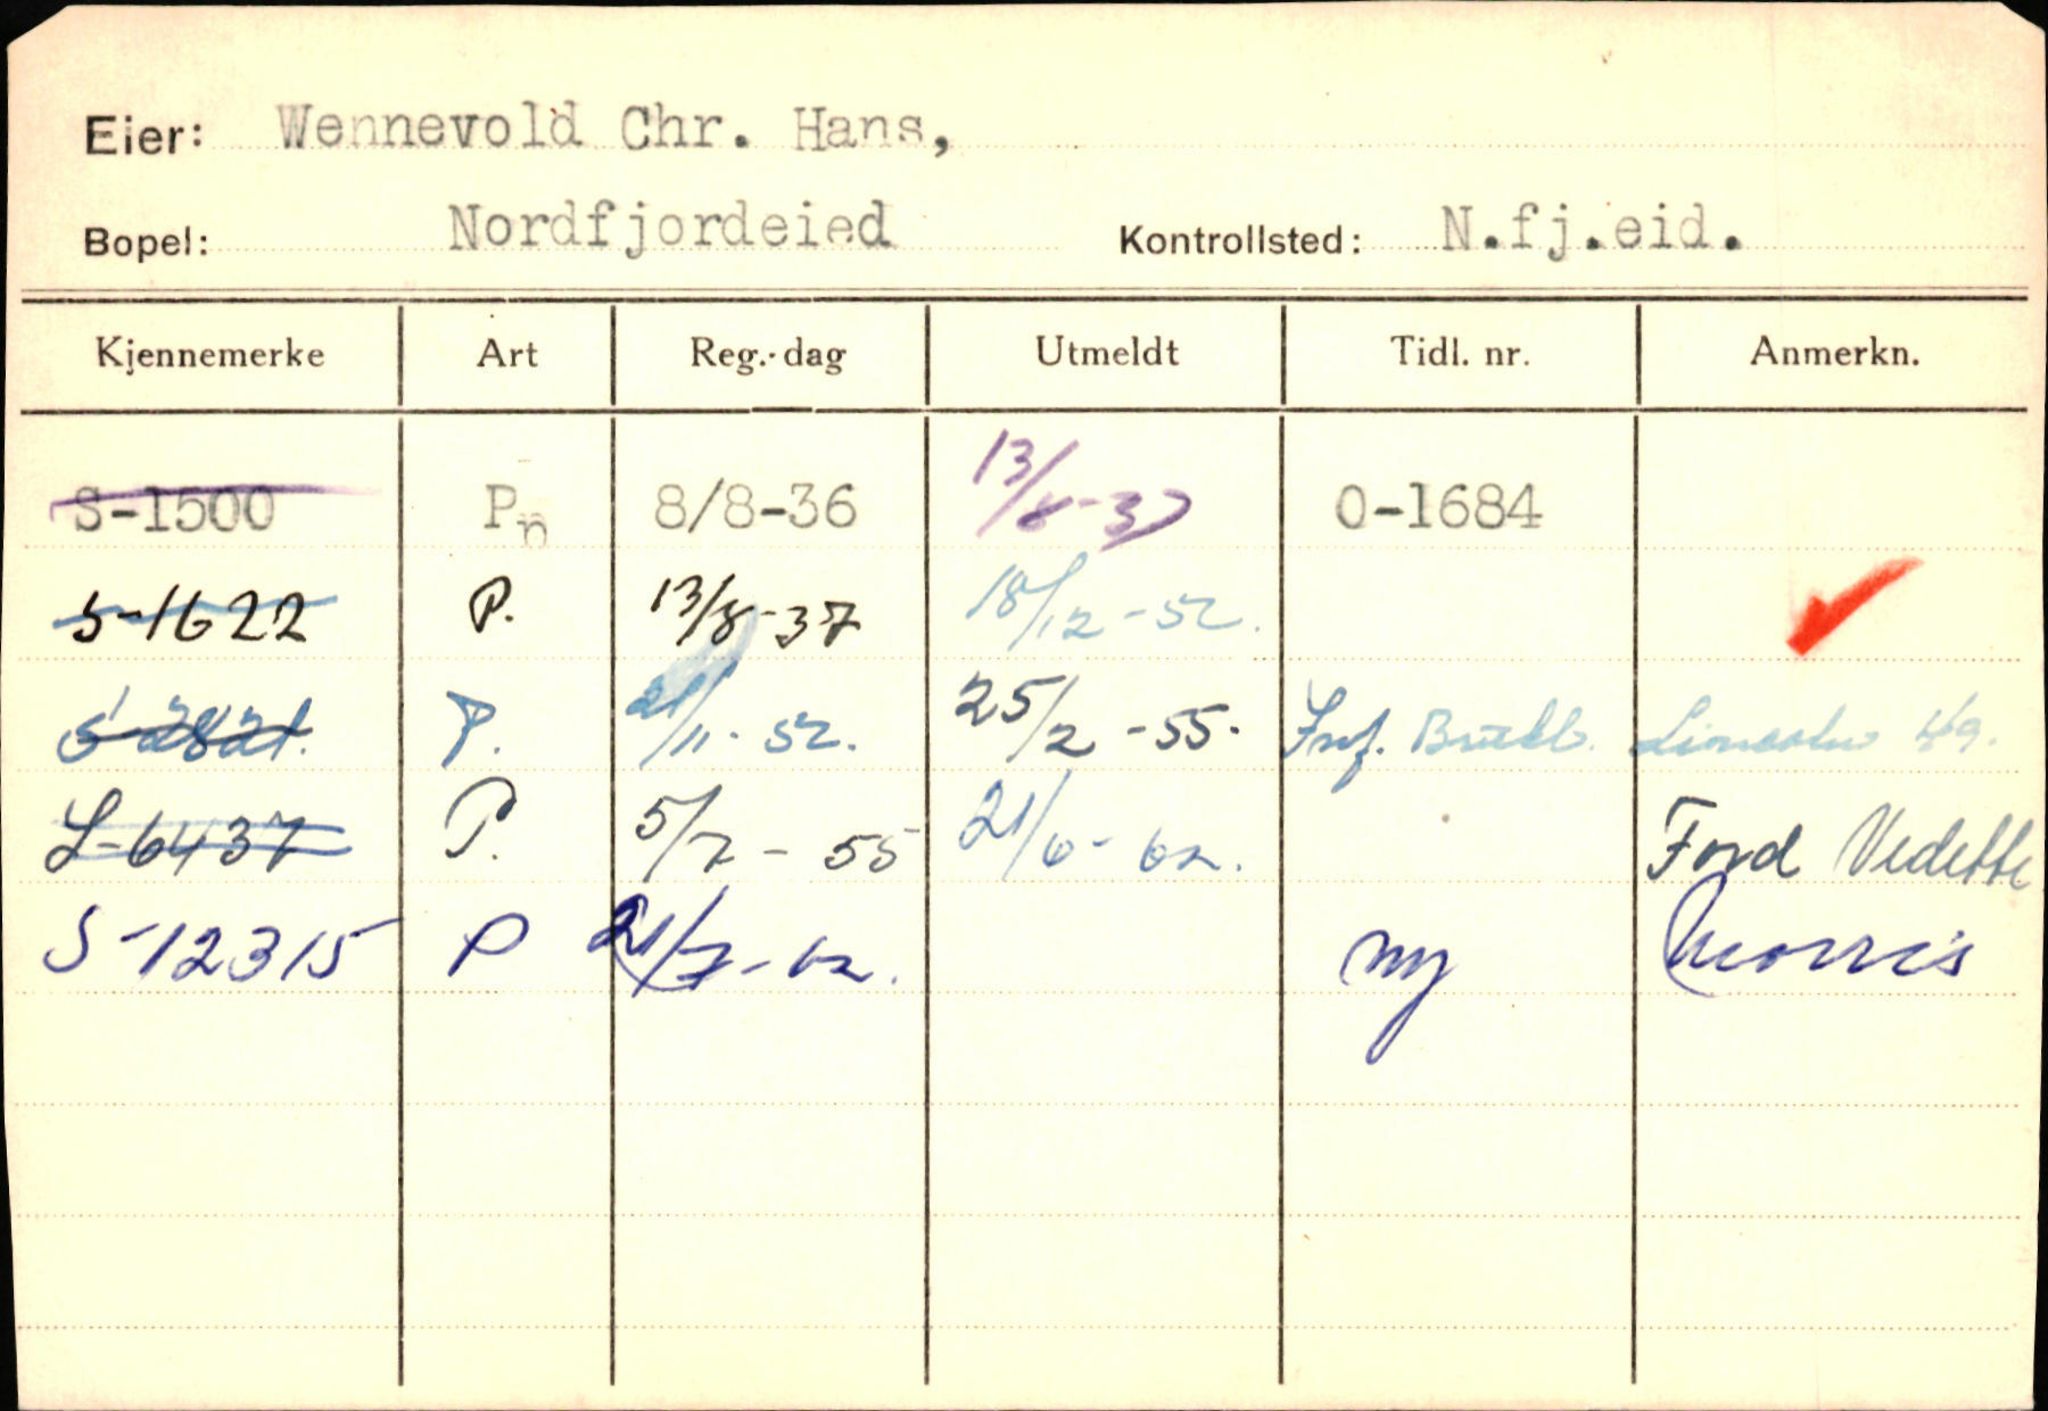 Eier: Wennevold Chr. Hans,
Bopel: Nordfjordeied Kontrollsted: N.fj.eid.
Kjennemerke Art Reg.-dag Utmeldt Tidl. nr. Anmerkn.
S-1500 Pn 8/8-36 13/8-37 O-1684
S-1622 P. 13/8-37 18/12-52.
S-2821. P. 21/11-52. 25/2-55. Lincoln
S-6437 P. 5/7-55 21/6-62. Ford Vedette
S-12315 P 21/7-62. ny Morris